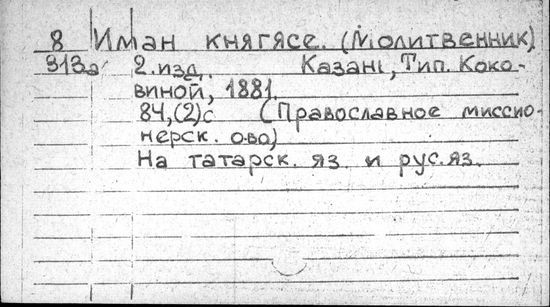 8 Иман княгясе. (Молитвенник)
313а 2.изд. Казань, Тип. Коко-
виной, 1881.
84,(2)с (Православное миссио-
нерск. о-во)
На татарск. яз. и рус.яз.